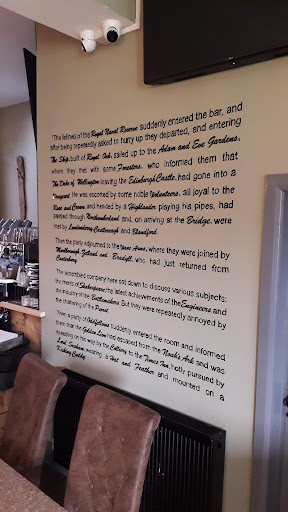 "The fellows of the Royal Naval Reserve suddenly entered the bar, and
after being repeatedly asked to hurry up they departed, and entering
The Ship, built of Royal Oak, sailed up to the Adam and Eve Gardens,
where they met with some Foresters, who informed them that
The Duke of Wellington leaving the Edinburgh Castle, had gone into a
Vineyard. He was escorted by some noble Volunteers, all loyal to the
Rose and Crown and headed by a Highlander playing his pipes, had
passed through Northumberland and, on arriving at the Bridge, were
met by Londonderry Castlereagh and Blandford.
Then the party adjourned to the Vane Arms, where they were joined by
Marlborough Zetland and Braddyll, who had just returned from
Canterbury.
The assembled company here sat down to discuss various subjects:
the merits of Shakespeare; the latest achievements of the Engineers and
the industry of the Bottlemakers. But they were repeatedly annoyed by
the chattering of the Parrot.
Then a party of Oddfellows suddenly entered the room and informed
them that the Golden Lion had escaped from the Noah's Ark and was
speeding on his way by the Colliery to the Times Inn, hotly pursued by
Lord Seaham wearing a Hat and Feather and mounted on a
Kicking Cuddy.